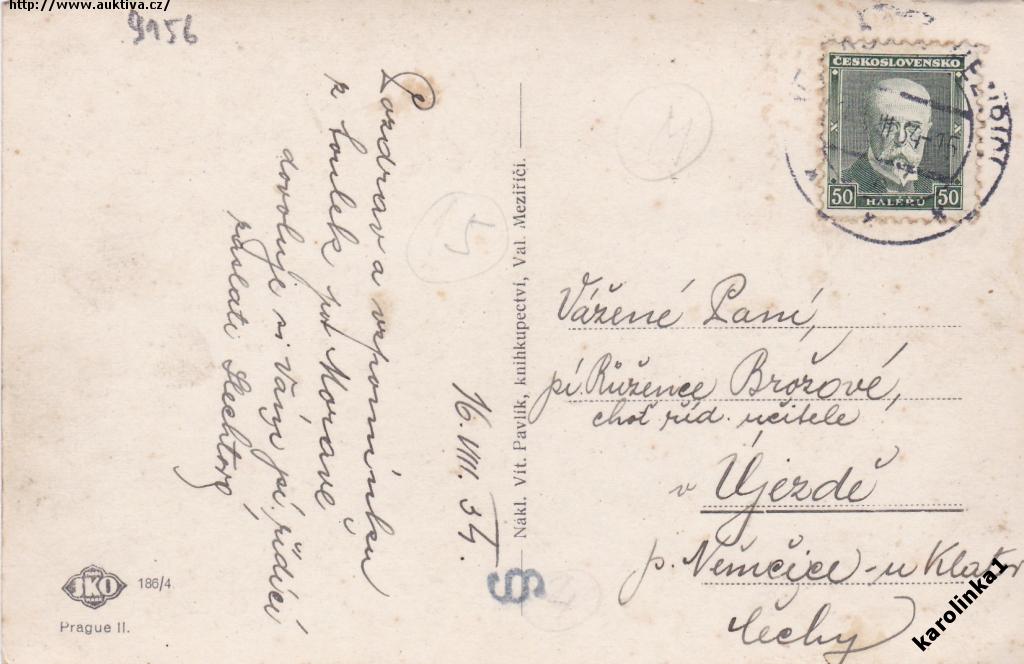 http://www.auktiva.cz/
9156
Pozdrav a vzpomínku
z toulek po Moravě
dovoluje si Vám, pí. řídící
zaslati
16. VIII. 34.
15
Nákl. Vít. Pavlík, knihkupectví, Val. Meziříčí.
ČESKOSLOVENSKO
50 HALÉŘŮ 50
VIII 34-16
Vážené Paní,
pí. Růžence Brožové,
choť říd. učitele
v Újezdě
p. Němčice-u Klatov
Čechy
GRKO
186/4
Prague II.
karolinka1